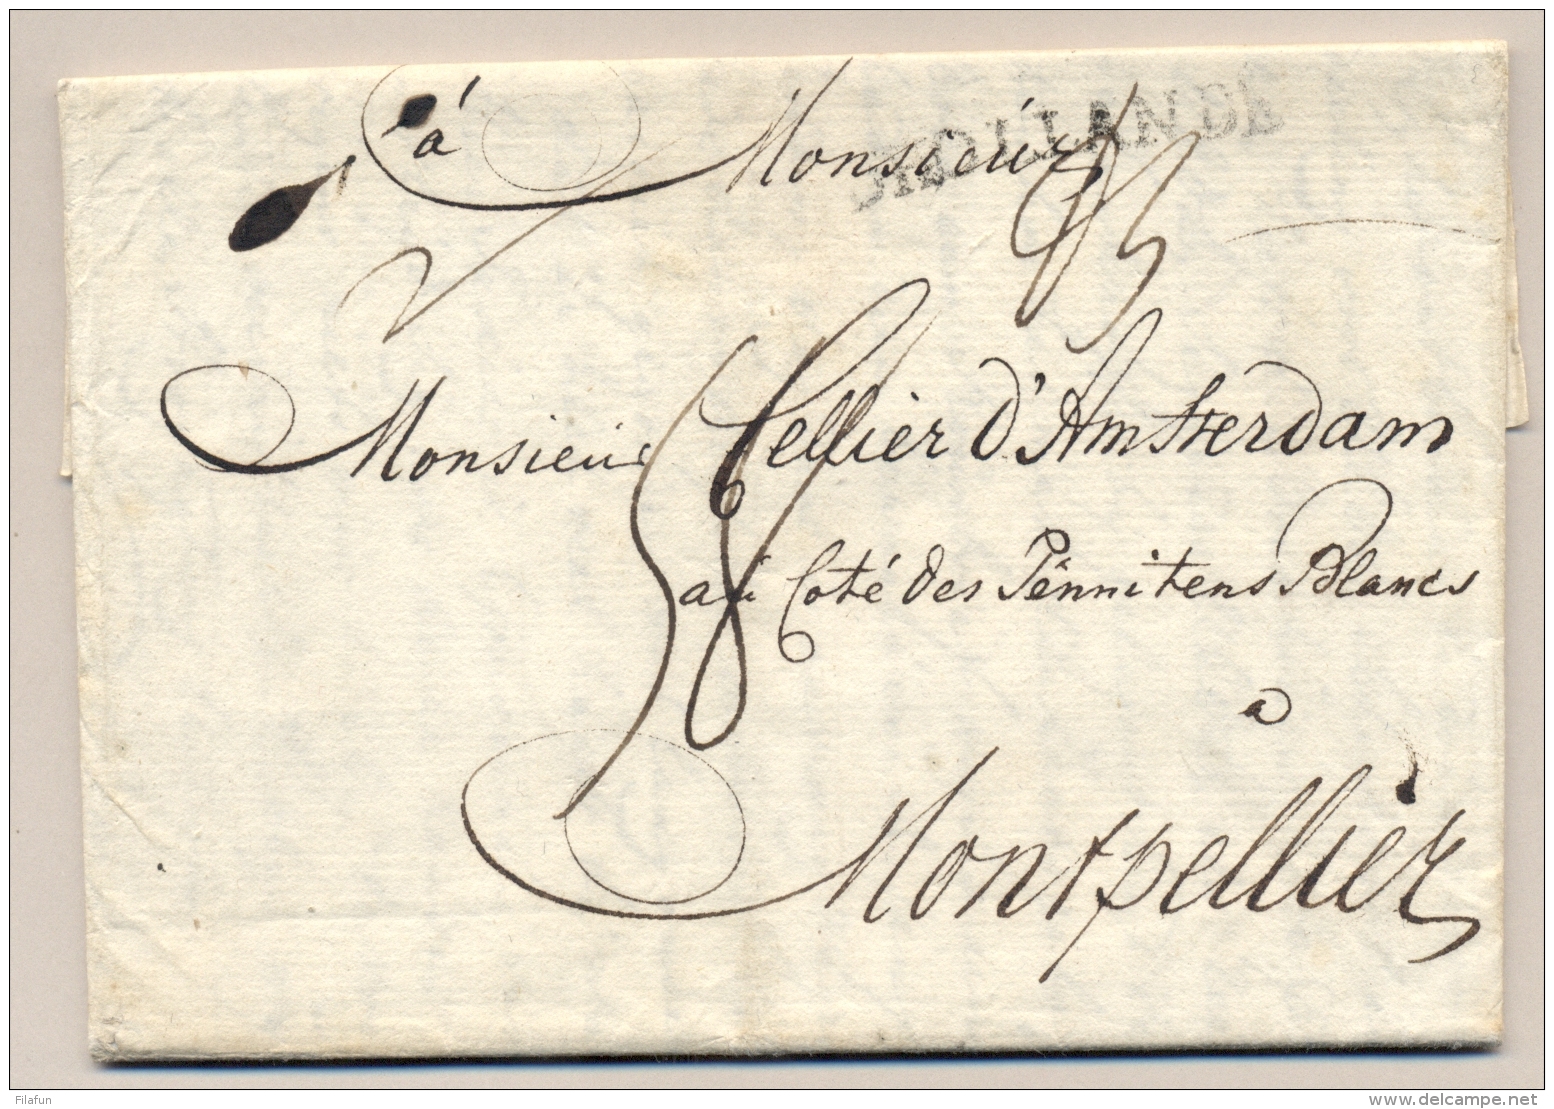 HOLLANDE
à Monsieur
Monsieur Cellier d'Amsterdam
au Coté des Pénnitens Blancs
a
Montpelliér
Filafun
www.delcampe.net